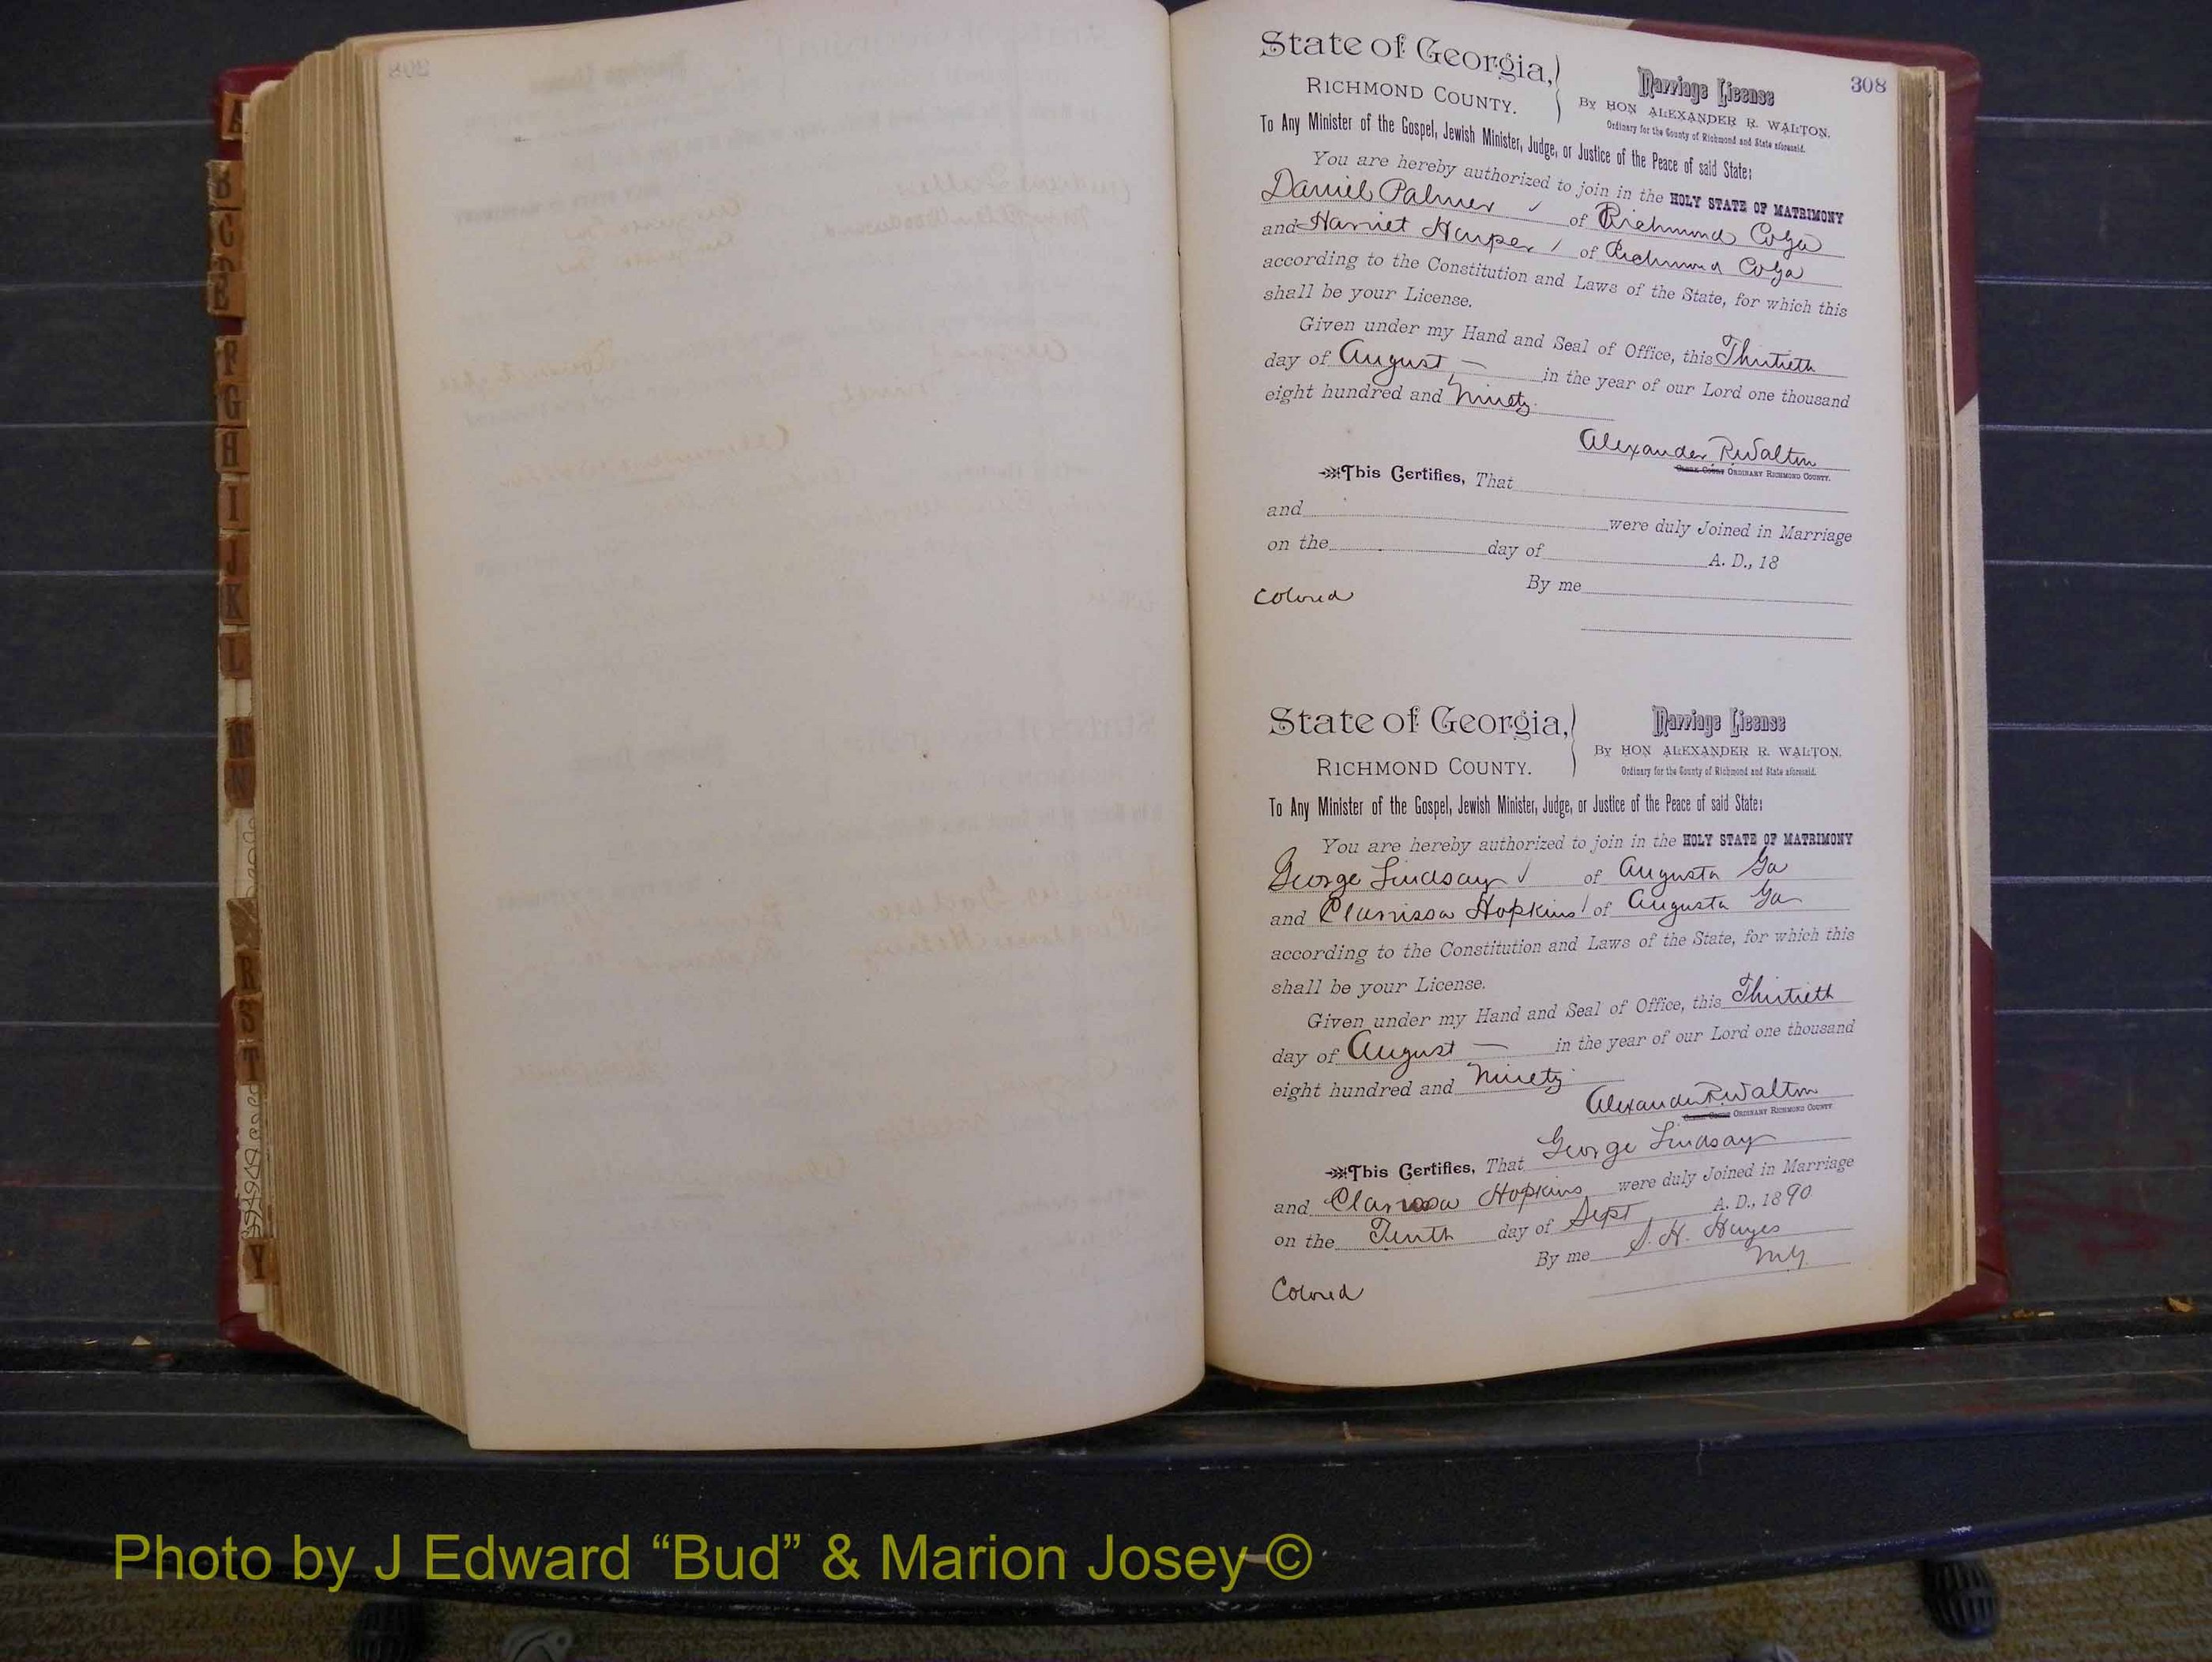 308
State of Georgia,
RICHMOND COUNTY.
Marriage License
By HON. ALEXANDER R. WALTON,
Ordinary for the County of Richmond and State aforesaid.
To Any Minister of the Gospel, Jewish Minister, Judge, or Justice of the Peace of said State:
You are hereby authorized to join in the HOLY STATE OF MATRIMONY
Daniel Palmer of Richmond Co Ga
and Harriet Harper of Richmond Co Ga
according to the Constitution and Laws of the State, for which this
shall be your License.
Given under my Hand and Seal of Office, this Thirtieth
day of August in the year of our Lord one thousand
eight hundred and Ninety
Alexander R. Walton
ORDINARY RICHMOND COUNTY.
This Certifies, That
and were duly Joined in Marriage
on the day of A. D., 18
By me
Colored
State of Georgia,
RICHMOND COUNTY.
Marriage License
By HON ALEXANDER R. WALTON.
Ordinary for the County of Richmond and State aforesaid.
To Any Minister of the Gospel, Jewish Minister, Judge, or Justice of the Peace of said State:
You are hereby authorized to join in the HOLY STATE OF MATRIMONY
George Lindsay of Augusta Ga
and Clarrissa Hopkins of Augusta Ga
according to the Constitution and Laws of the State, for which this
shall be your License.
Given under my Hand and Seal of Office, this Thirtieth
day of August in the year of our Lord one thousand
eight hundred and Ninety
Alexander R. Walton
ORDINARY RICHMOND COUNTY
This Certifies, That George Lindsay
and Clarissa Hopkins were duly Joined in Marriage
on the Tenth day of Sept A. D., 1890
By me S. H. Hayes
M G
Colored
A
B
C
F
G
H
I
J
K
L
N
R
S
T
Y
Photo by J Edward “Bud” & Marion Josey ©